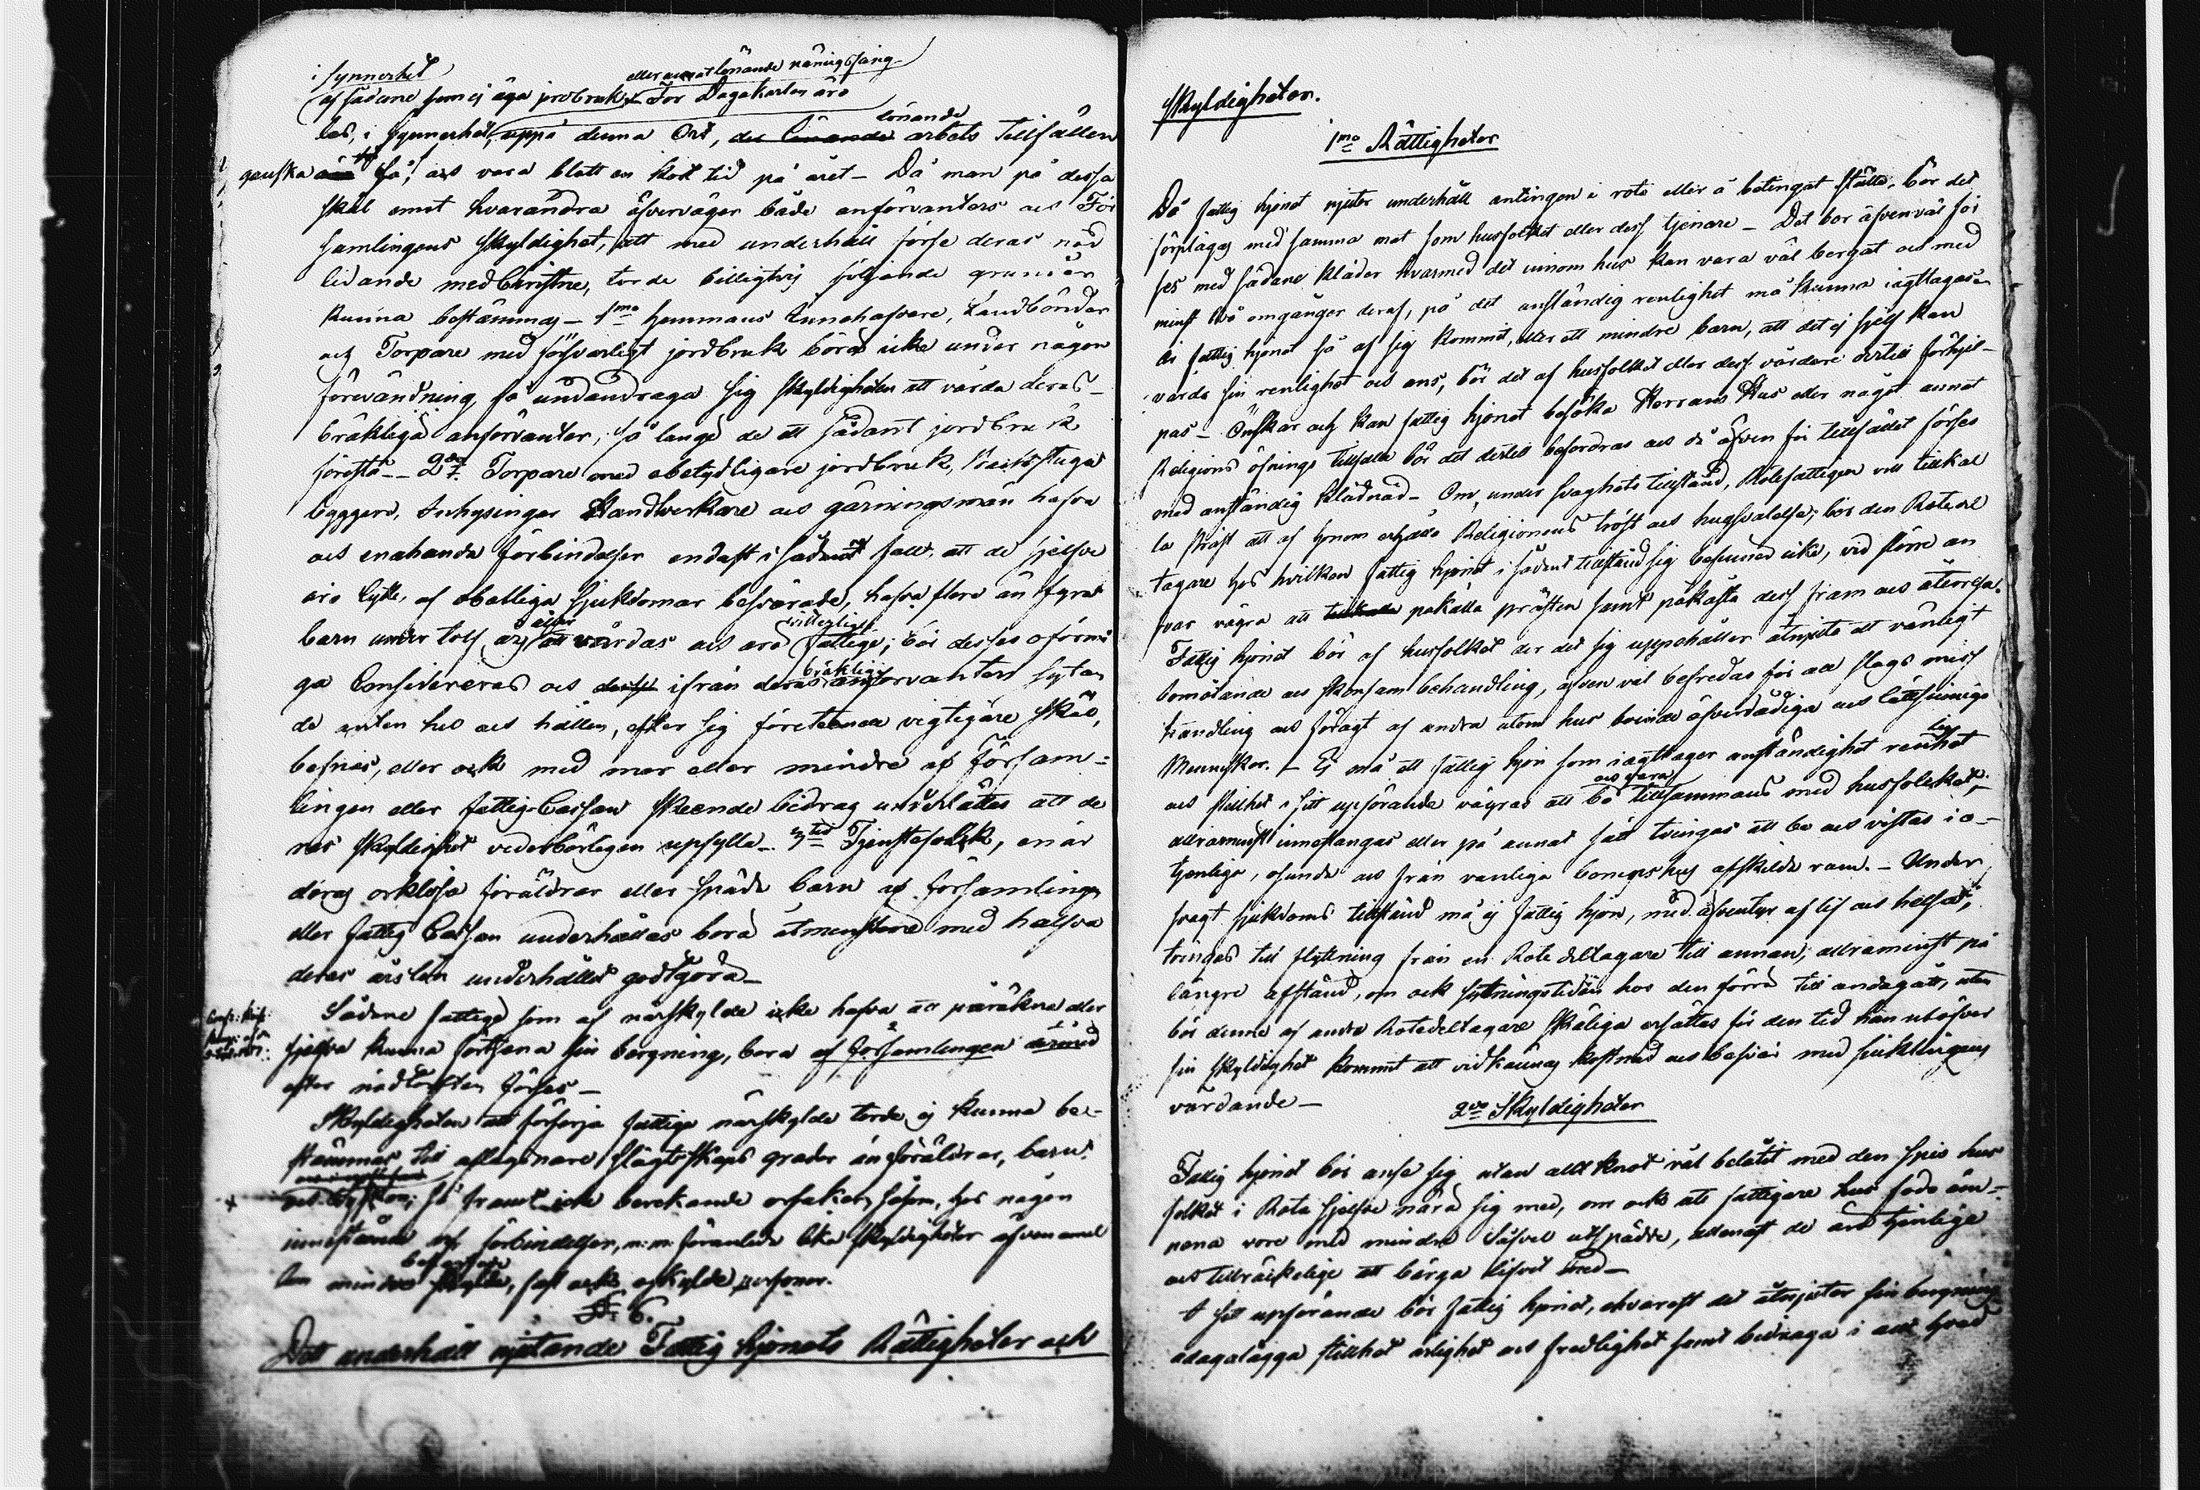 i synnerhet
eller annat lönande näringsfång
af sådane som ej äga jordbruk. För Dagakarlen äro
las, i synnerhet, uppå denna Ort, lönande arbets tillfällen
ganska få, och vara blott en kort tid på året – Då man på dessa
skäl emot hvarandra öfverväger både anförvanters och För
samlingens skyldighet, att med underhåll förse deras nöd
lidande medChristne, torde billigtvis följande grunder
kunna bestämmas – 1mo Hemmans Innehafvare, Landbönder
och Torpare med försvarligt jordbruk böra icke under någon
förevändning få undandraga sig skyldigheten att vårda deras
bräkliga anförvanter, så länge de ett sådant jordbruk
förestå – 2do Torpare med obetydligare jordbruk, Backstuga
byggare, Inhysingar Handtverkare och gärningsmän hafva
och enahanda förbindelser endast i sådant fall att de sjelfve
äro lytte, af obotliga sjukdomar besvärade, hafva flere än fyra
barn under tolf år att vårdas och äro fattige; bör desses oförmå
ga Considereras och ifrån deras bräkliga anförvanters sytan
de antin hel och hållen, efter sig företeende vigtigare skäl,
befrias, eller ock med mer eller mindre af Försam=
lingen eller Fattig-Cassan skeende bidrag underlättas att de
ras skyldighet vederbörligen upfylla – 3tio Tjenstefolk, enär
deras orklösa föräldrar eller späda barn af Församlingen
eller Fattig Cassan underhållas böra åtminstone med halfva
deras årslön underhållet godtgöra –
Sådane fattige som af närskylde icke hafva att påräkna eller
sjelfva kunna förtjena sin bergning, böra af Församlingen
efter nödtorften förses –
Skyldigheten att försörja fattige närskylde torde ej kunna be=
stämmas till aflägsnare slägtskaps grader än föräldrar, barn
så framt icke orsaker, såsom, hos någon
förbindelser, m:m: föranleda lika skyldigheter äfven emel
lan mindre skylde, fast ock oskylde personer.
§. 6.
Det underhåll njutande Fattig hjonets Rättigheter och
Skyldigheter.
1mo Rättigheter
Då fattig hjonet njuter underhåll antingen i rote eller å betingat ställe, bör det
förplägas med samma mat som husfolket eller dess tjenare – Det bör äfvenväl för
ses med sådane kläder hvarmed det innom hus kan vara väl bergat och med
minst två omgångar deraf, på det anständig renlighet må kunna iagttagas –
Är fattig hjonet så af sig kommit, eller ett mindre barn, att det ej sjelf kan
vårda sin renlighet och ans, bör det af husfolket eller dess vårdare dertill förhjel=
pas – Önskar och kan fattig hjonet besöka Herrans Hus eller något annat
Religions öfnings tillfälle bör det dertill befordras och då äfven för tillfället förses
med anständig klädnad – Om, under svaghets tillstånd, Rotefattigen vill tillkal
la Präst att af honom erhålla Religionens tröst och hugsvalelse, bör den Rotedel
tagare hos hvilken fattig hjonet i sådant tillstånd sig befinner icke, vid större an
svar vägra att påkalla prästen samt påkosta dess fram och återresa.
Fattig hjonet bör af husfolket der det sig uppehåller åtnjuta ett vänligt
bemötande och skonsam behandling, äfven väl befredas för all slags miss
handling och föragt af andra utom hus boende öfverdådiga och lättsinniga
Menniskor. – Ej må ett fattig hjon som iagttager anständighet renlighet
och stillhet i sitt upförande vägras att bo och vara tillsammans med husfolket,
allraminst innestängas eller på annat sätt tvingas att bo och vistas i o=
tjenliga, osunda och från vanliga boningshus afskilda rum. – Under
svagt sjukdoms tillstånd må ej fattig hjon, med äfventyr af lif och helsa,
tvingas till flyttning från en Rote deltagare till annan, allraminst på
längre afstånd, om ock sytningstiden hos den förra till ändagått, utan
bör denne af andra Rotedeltagare skäliga ersättas för den tid han utöfver
sin skyldighet kommit att vidkännas kostnad och besvär med sjuklingens
vårdande –
2do Skyldigheter
Fattig hjonet bör anse sig utan allt knot väl belåtet med den spis hus
folket i Rote sjelfve nära sig med, om ock ett fattigare hus födo äm=
nena vore med mindre Sofvel utspädde, allenast de äro tjenlige
och tillräckelige att bärga lifvet med –
I sitt upförande bör fattig hjonet, ehvarest det åtnjuter sin bergning
ådagalägga stillhet ärlighet och fredlighet samt bidraga i allt hvad